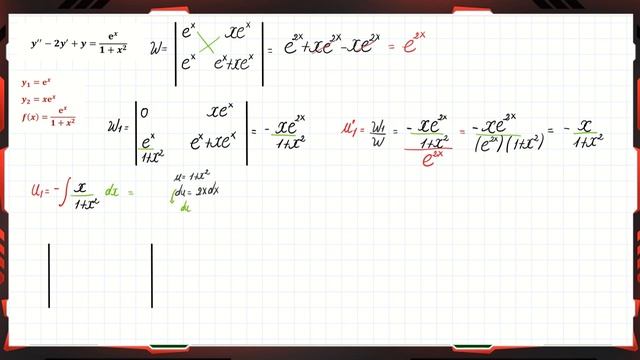 y″ − 2y′ + y = eˣ/(1 + x²)   W = | eˣ  xeˣ ; eˣ  eˣ+xeˣ | = e²ˣ + xe²ˣ − xe²ˣ = e²ˣ
y₁ = eˣ
y₂ = xeˣ
f(x) = eˣ/(1 + x²)
W₁ = | 0  xeˣ ; eˣ/(1+x²)  eˣ+xeˣ | = − xe²ˣ/(1+x²)   u₁′ = W₁/W = (− xe²ˣ/(1+x²))/e²ˣ = −xe²ˣ/((e²ˣ)(1+x²)) = − x/(1+x²)
u₁ = −∫ x/(1+x²) dx =
u = 1+x²
du = 2xdx
du